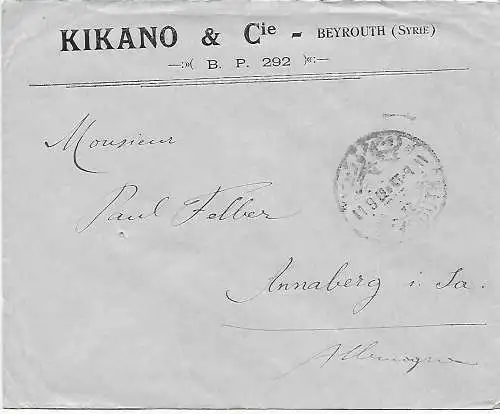 KIKANO & Cie - BEYROUTH (SYRIE)
B. P. 292
Monsieur
Paul Felber
Annaberg i. Sa.
Allemagne